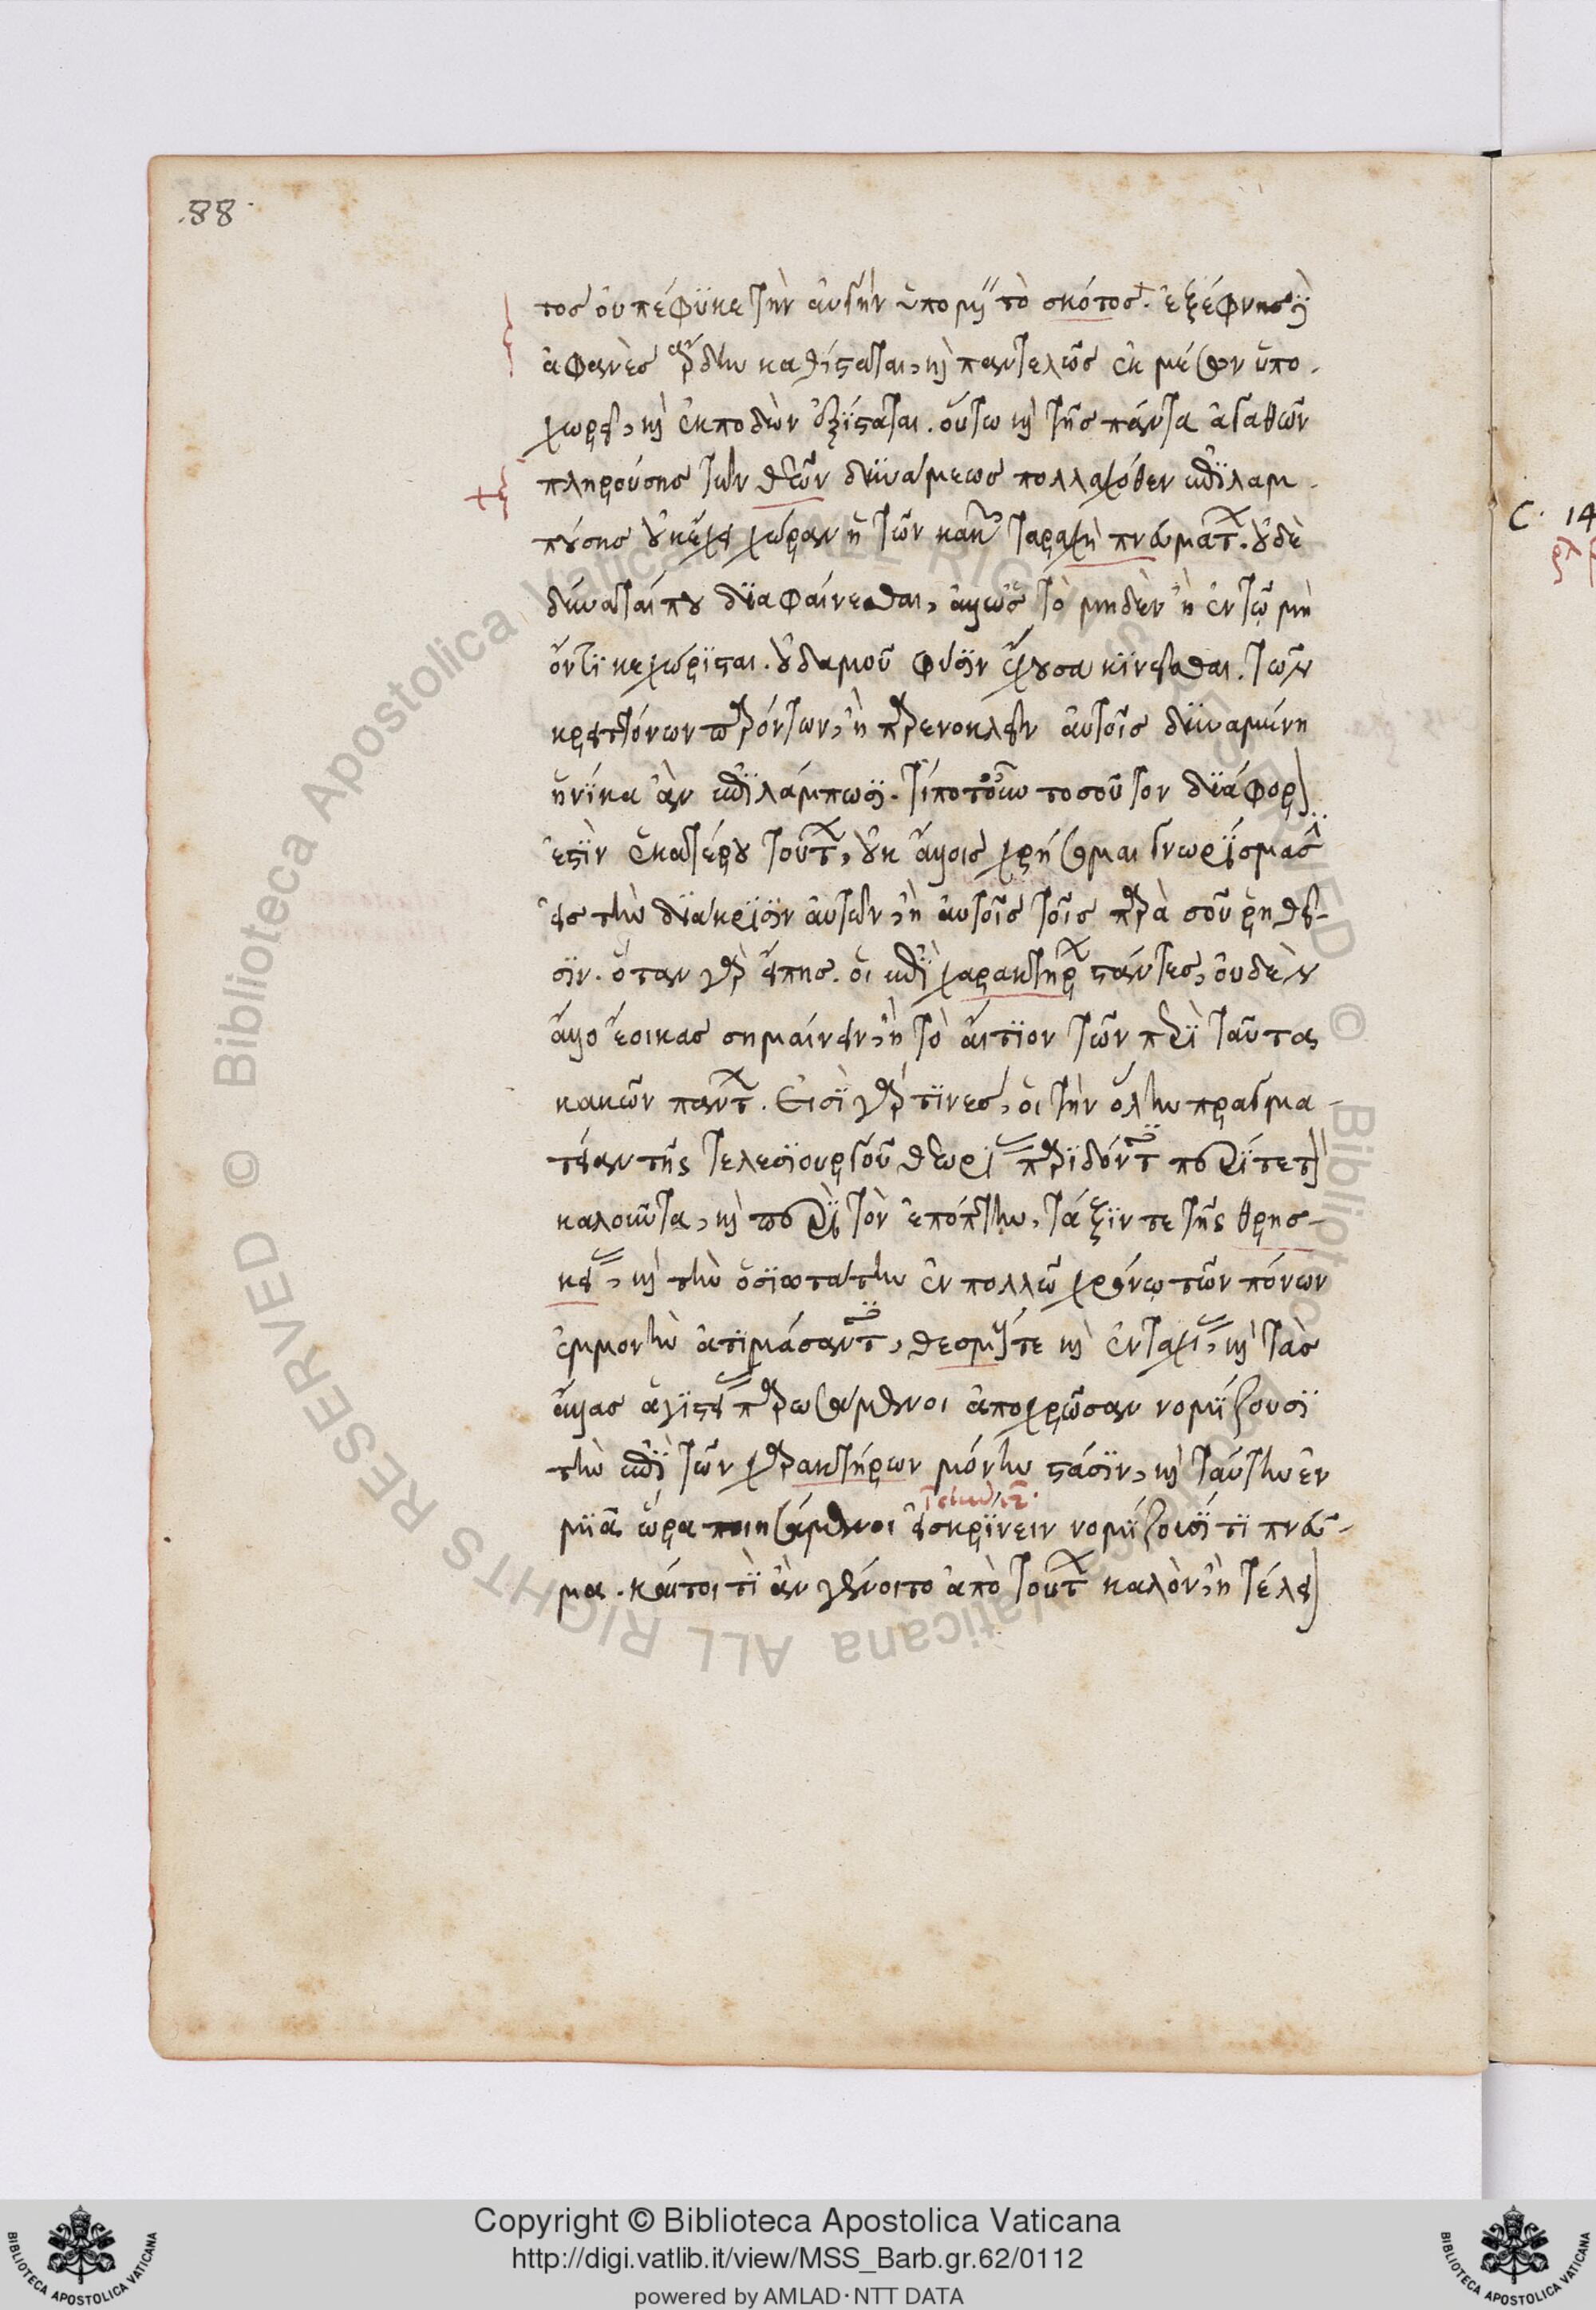 .88.
τος οὐ πέφυκε τὴν αὐγὴν ὑπομεῖναι τὸ σκότος. ἐξέφνης δὲ
ἀφανὲς ἄρδην καθίσταται, καὶ παντελῶς ἐκ μέσων ὑπο-
χωρεῖ, καὶ ἐκποδὼν ἐξίσταται. οὕτω καὶ τῆς πάντα ἀγαθῶν
πληρούσης τῶν θεῶν δυνάμεως πολλαχόθεν ἐπιλαμ-
πούσης οὐκ ἔχει χώραν ἡ τῶν κακῶν ταραχὴ πνευμάτων. οὐδὲ
δύναταί που διαφαίνεσθαι, ἀλλ' ὡς τὸ μηδὲν ἢ ἐν τῷ μὴ
ὄντι κεχώρισται. οὐδαμοῦ φύσιν ἔχουσα κινεῖσθαι. τῶν
κρειττόνων παρόντων, ἢ παρενοχλεῖν αὐτοῖς δυναμένη
ἡνίκα ἂν ἐπιλάμπωσι. τί ποτ' οὖν τοσοῦτον διάφορον
ἐστὶν ἑκατέρου τούτων, οὐκ ἄλλοις χρήσομαι γνωρίσμασιν
εἰς τὴν διάκρισιν αὐτῶν, ἢ αὐτοῖς τοῖς παρὰ σοῦ ῥηθεῖ-
σιν. ὅταν γὰρ εἴπης. οἱ ἐπὶ χαρακτήρων στάντες, οὐδὲν
ἄλλο ἔοικας σημαίνειν, ἢ τὸ αἴτιον τῶν περὶ ταῦτα
κακῶν πάντων. Εἰσὶ γάρ τινες, οἱ τὴν ὅλην πραγμα-
τείαν τῆς τελεσιουργοῦ θεωρίας παριδόντες περί τε τὸν
καλοῦντα, καὶ περὶ τὸν ἐπόπτην, τάξιν τε τῆς θρησ-
κείας, καὶ τὴν ὁσιωτάτην ἐν πολλῷ χρόνῳ τῶν πόνων
ἐμμονὴν ἀτιμάσαντες, θεσμούς τε καὶ ἐντυχίας, καὶ τὰς
ἄλλας ἁγιστείας παρωσάμενοι ἀποχρῶσαν νομίζουσι
τὴν ἐπὶ τῶν χαρακτήρων μόνην στάσιν, καὶ ταύτην ἐν
μιᾷ ὥρα ποιησάμενοι εἰσκρίνειν νομίζουσί τι πνεῦ-
μα. καίτοι τί ἂν γένοιτο ἀπὸ τούτων καλὸν, ἢ τέλειον
C. 14
Copyright © Biblioteca Apostolica Vaticana
http://digi.vatlib.it/view/MSS_Barb.gr.62/0112
powered by AMLAD·NTT DATA
© Biblioteca Apostolica Vaticana ALL RIGHTS RESERVED © Biblioteca Apostolica Vaticana ALL RIGHTS RESERVED
BIBLIOTECA APOSTOLICA VATICANA
BIBLIOTECA APOSTOLICA VATICANA